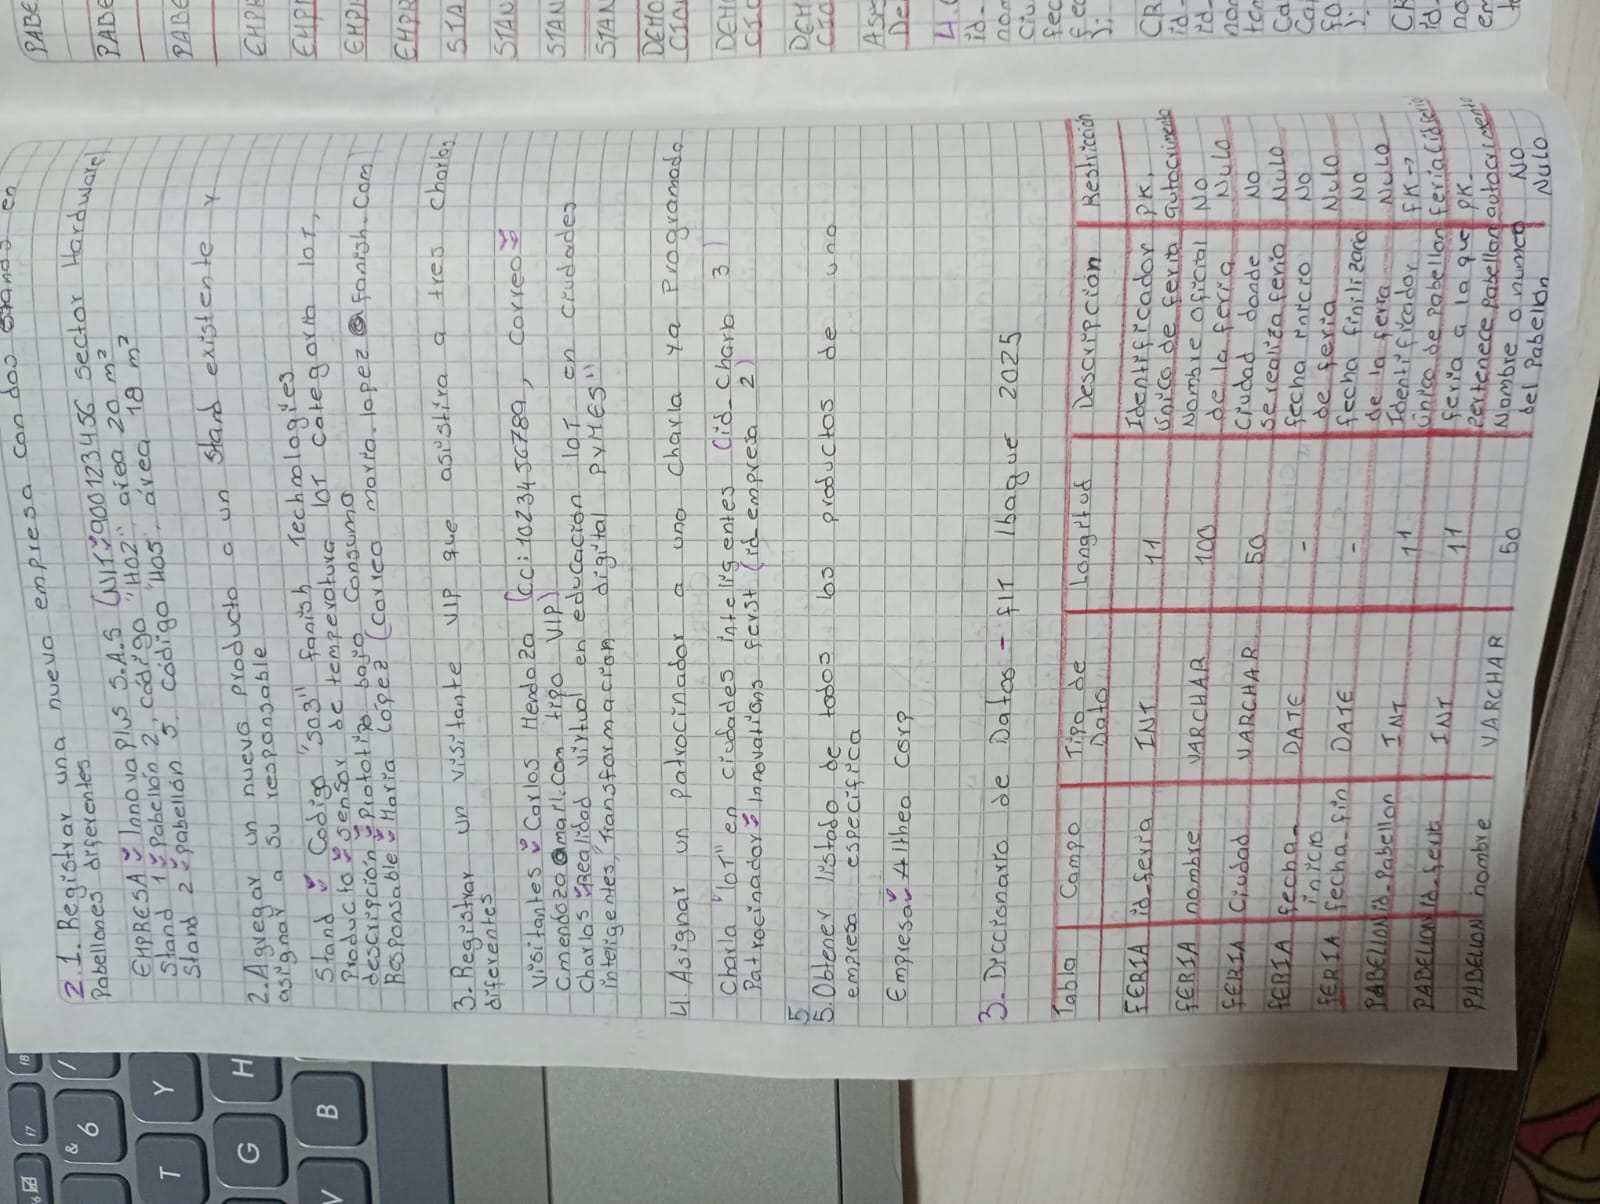 2.1. Registrar una nueva empresa con dos stands en
Pabellones diferentes
EMPRESA Innova plus S.A.S (NIT 900123456 sector Hardware)
Stand 1 Pabellón 2, código "H02" área 20 m²
Stand 2 Pabellón 5. código "H05. área 18 m²
2. Agregar un nuevo producto a un stand existente y
asignar a su responsable
Stand Codigo "S03" fanish Technologies
Producto Sensor de temperatura IoT categoría IoT,
descripción Prototipo bajo Consumo
Responsable María López (Correo maria.lopez @fanish.com)
3. Registrar un visitante VIP que asistira a tres charlas
diferentes
Visitantes Carlos Mendoza (CC: 1023456789, correo
Cmendoza@mail.com tipo VIP)
Charlas Realidad virtual en educacion IoT en ciudades
inteligentes, "Transformacion digital PYMES"
4. Asignar un patrocinador a una charla ya programada
Charla "IoT" en ciudades inteligentes (id_charla 3)
Patrocinador Innovations ferst (id empresa 2)
5
5. Obtener listado de todos los productos de una
empresa especifica
Empresa Althea corp
3. Diccionario de Datos - fIT Ibague 2025
Tabla Campo Tipo de Dato Longitud Descripcion Restriccion
FERIA id_feria INT 11 Identificador Unico de feria PK, autoaimento
FERIA nombre VARCHAR 100 Nombre oficial de la feria No Nulo
FERIA Ciudad VARCHAR 50 Ciudad donde se realiza feria No Nulo
FERIA fecha_inicio DATE - fecha inicio de feria No Nulo
FERIA fecha_fin DATE - fecha finilizario de la feria No Nulo
PABELLON id_Pabellon INT 11 Identificador unico de Pabellon FK→ feria(idferia)
PABELLON id_feria INT 11 feria a la que Pertenece Pabellon PK_ autoaimento
PABELLON nombre VARCHAR 50 Nombre o numero del Pabellón No Nulo
PABE
PABE
PABE
EMPR
EMPI
EMPI
EMPR
STA
STAN
STAN
STAN
DEMO
CION
DEMO
CIO
DEMO
CIO
Asi
De
4.
CR
id_
id_
nom
CR
id_
no
em